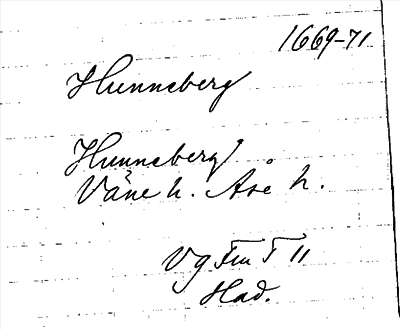 1669-71
Hunneberg
Hunneberg
Väne h. Åse h.
Vg Fm T 11
Had.